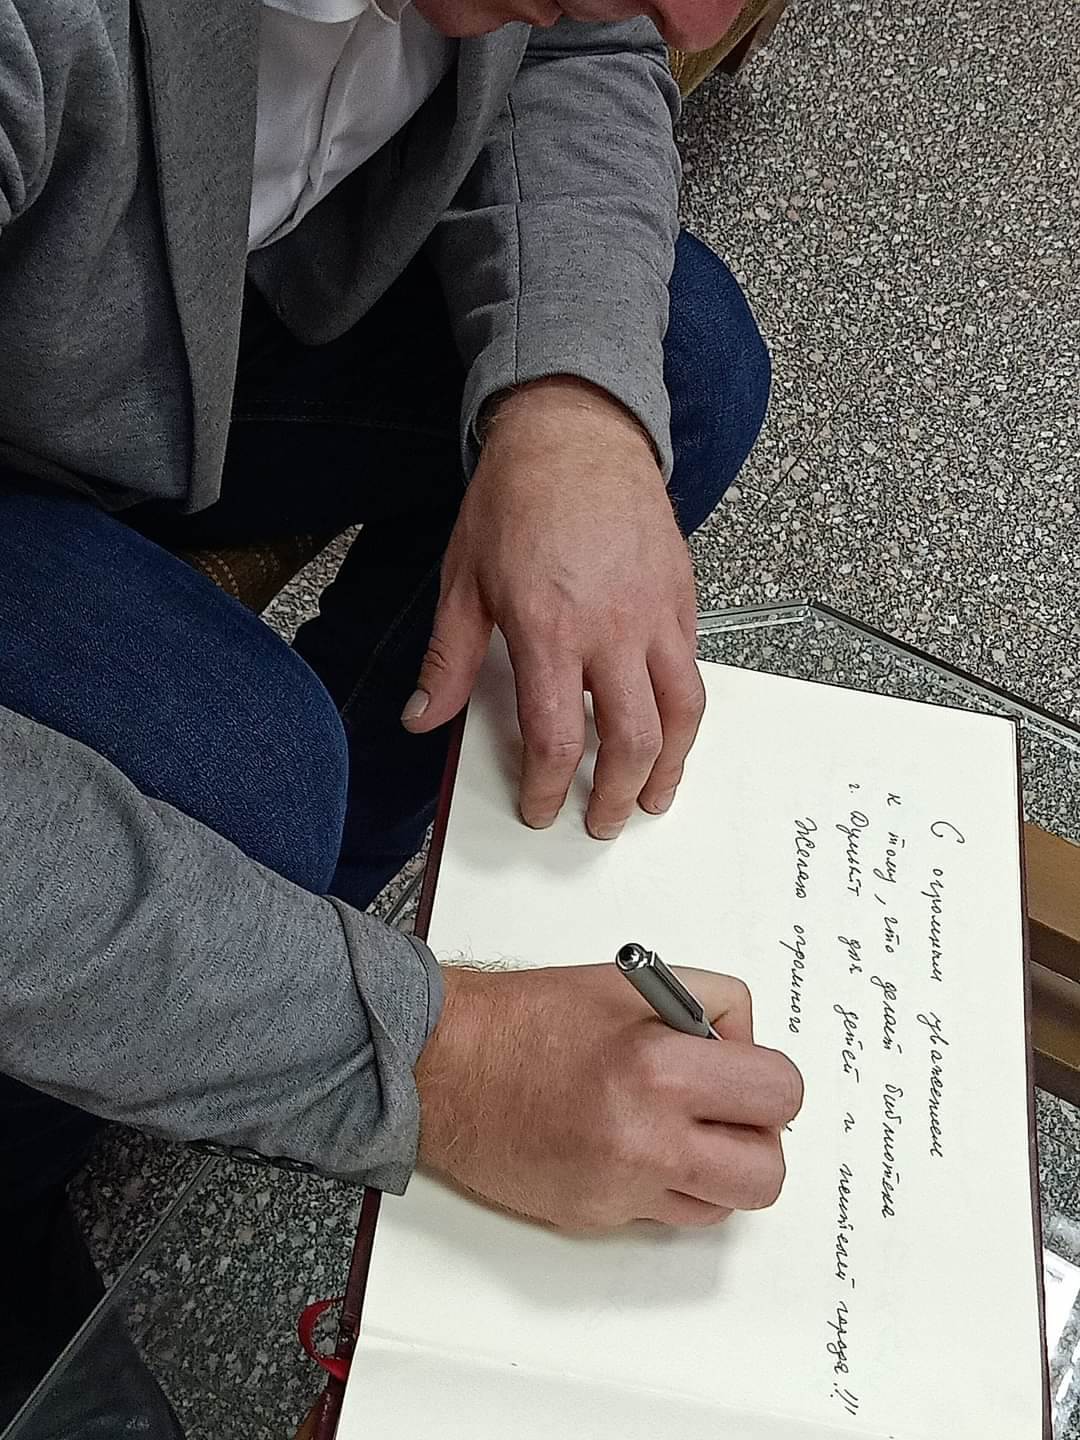 С огромным уважением
к тому, что делает библиотека
г. Думиничи для детей и жителей города!!!
Желаю огромного